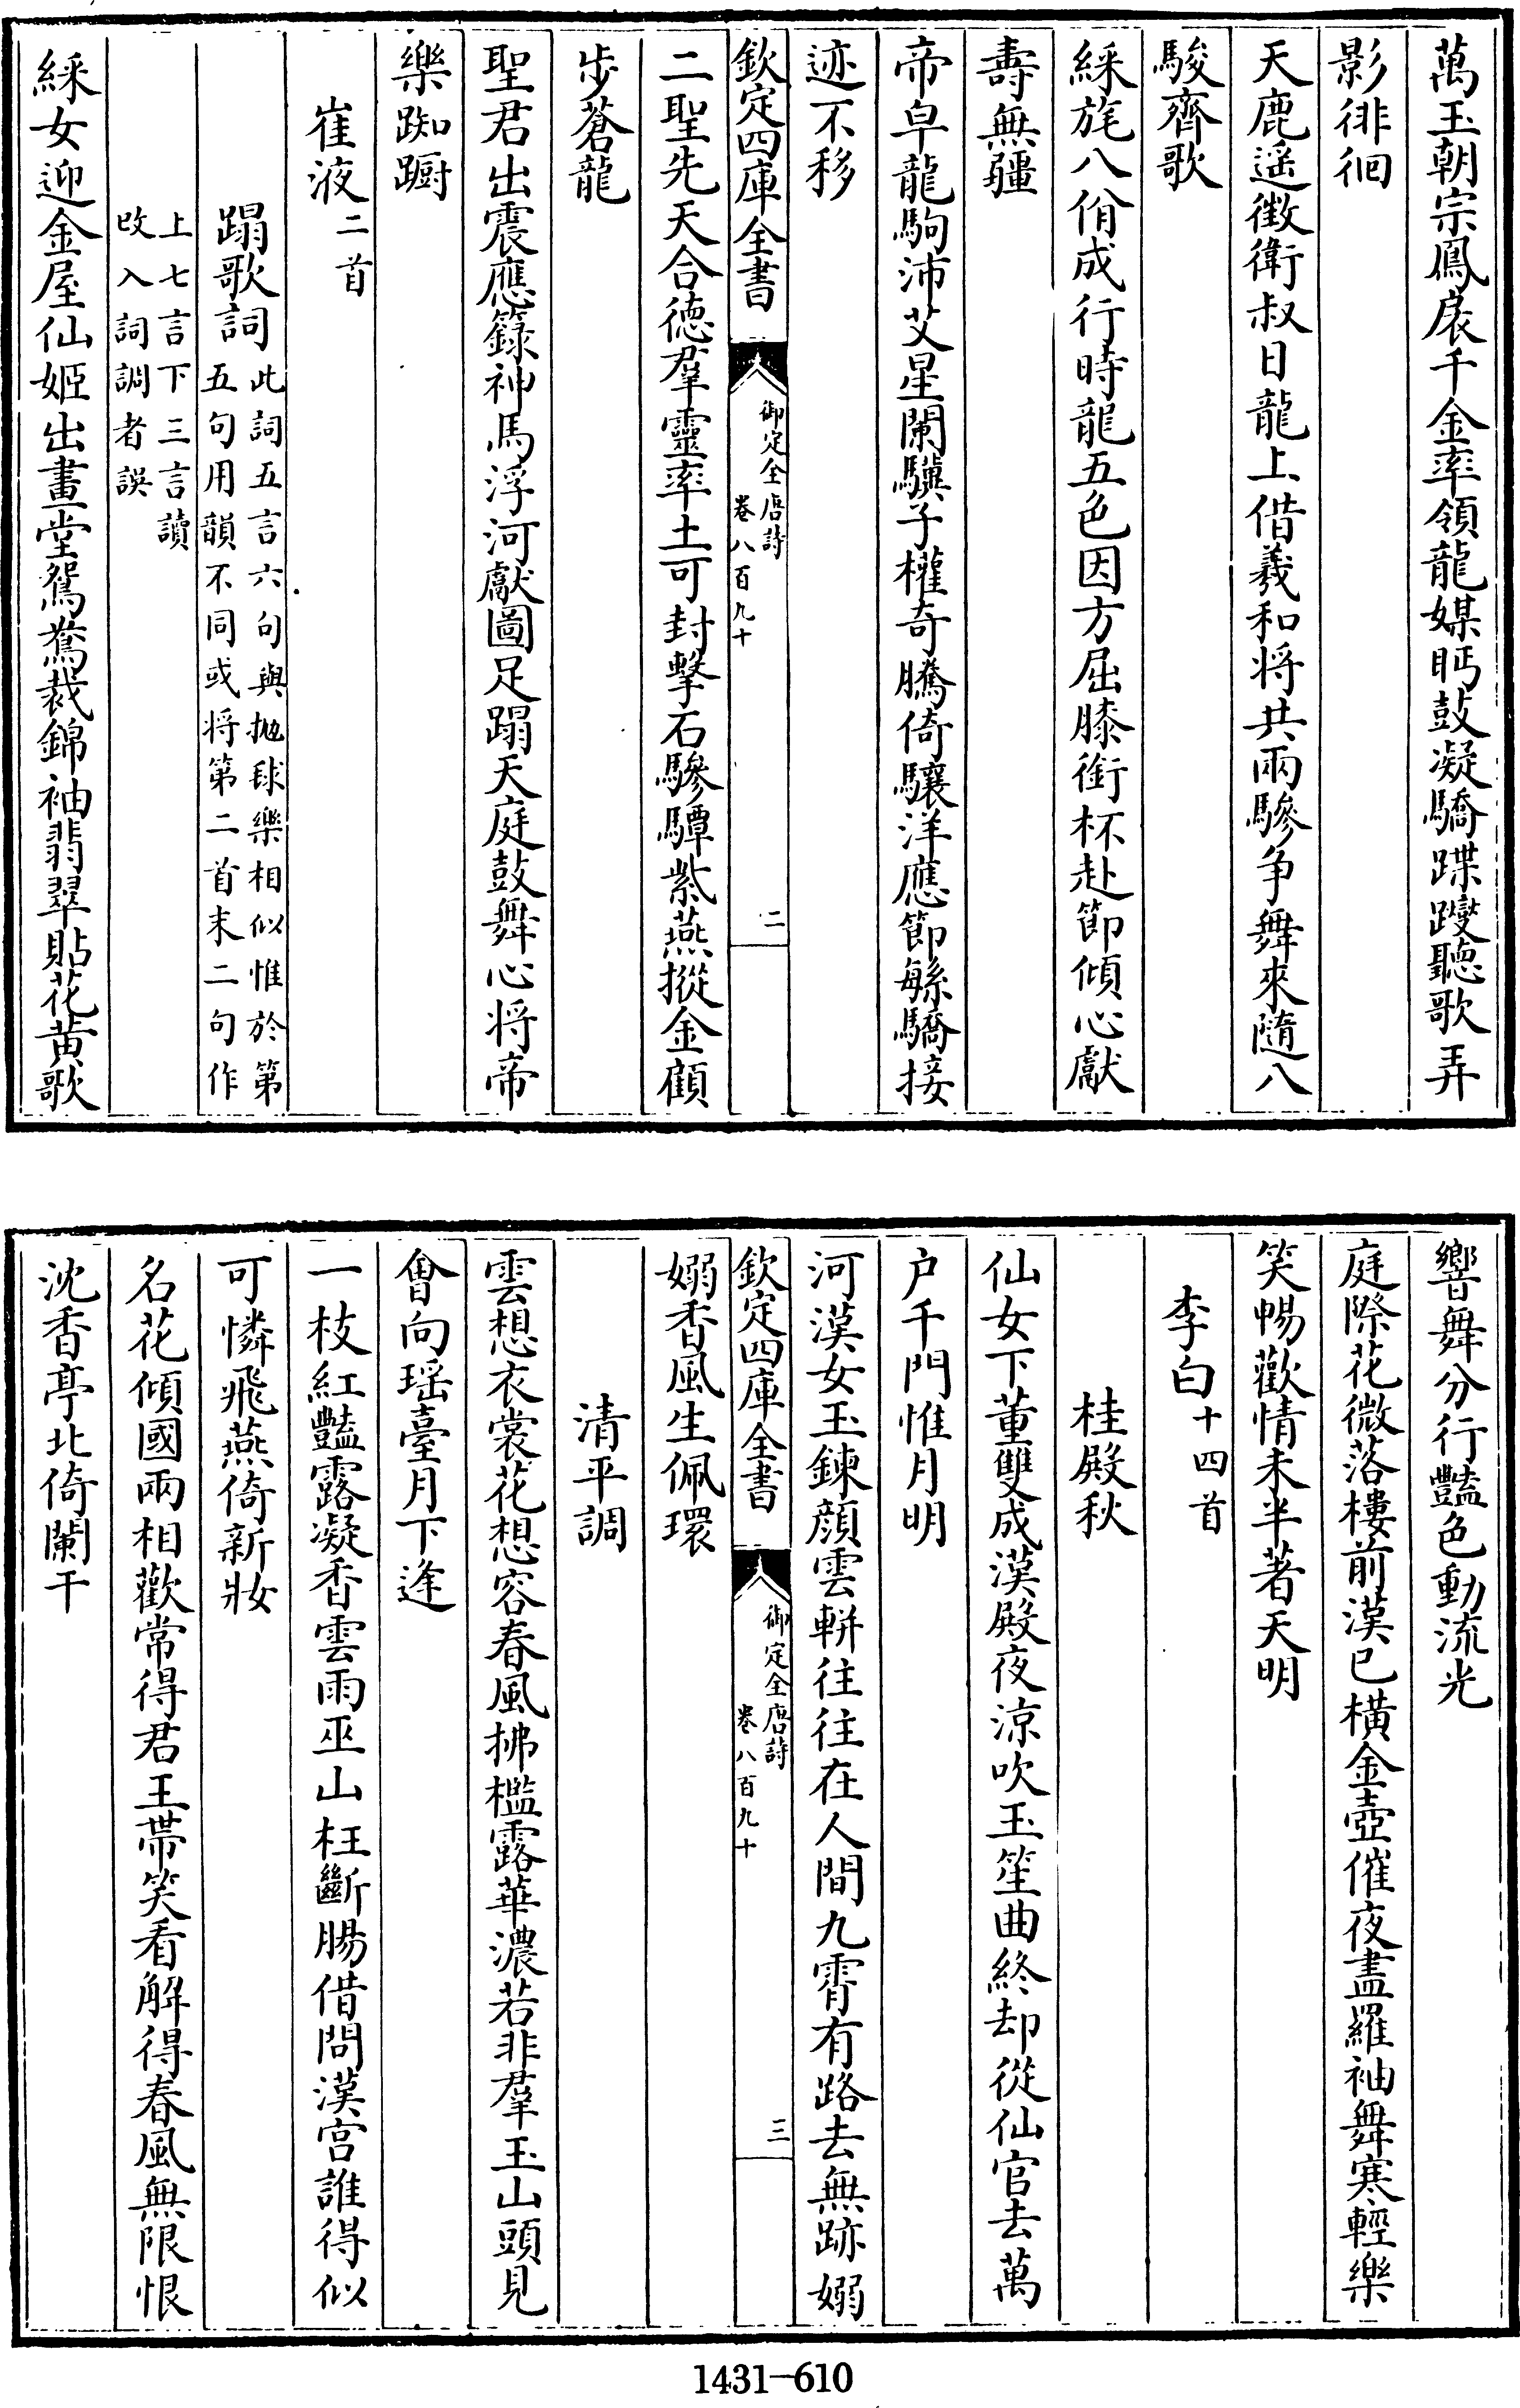 萬玉朝宗鳳扆千金率領龍媒眄鼓凝驕蹀躞聽歌弄
影徘徊
天鹿遥徵衛叔日龍上借羲和将共兩驂争舞來隨八
駿齊歌
綵旄八佾成行時龍五色因方屈膝銜杯赴節傾心獻
壽無疆
帝皁龍駒沛艾星闌驥子權奇騰倚驤洋應節繁驕接
迹不移
欽定四庫全書
御定全唐詩
卷八百九十
二
二聖先天合德羣靈率土可封擊石驂驔紫燕摐金顧
步蒼龍
聖君出震應籙神馬浮河獻圖足蹋天庭鼓舞心将帝
樂踟蹰
崔液二首
蹋歌詞此詞五言六句與抛毬樂相似惟於第
五句用韻不同或将第二首末二句作
上七言下三言讀
改入詞調者誤
綵女迎金屋仙姬出畫堂鴛鴦裁錦袖翡翠貼花黄歌
響舞分行豔色動流光
庭際花微落樓前漢已橫金壺催夜盡羅袖舞寒輕樂
笑暢歡情未半著天明
李白十四首
桂殿秋
仙女下董雙成漢殿夜涼吹玉笙曲終却從仙官去萬
户千門惟月明
河漢女玉鍊顔雲軿往往在人間九霄有路去無跡嫋
欽定四庫全書
御定全唐詩
卷八百九十
三
嫋香風生佩環
清平調
雲想衣裳花想容春風拂檻露華濃若非羣玉山頭見
會向瑶臺月下逢
一枝紅豔露凝香雲雨巫山枉斷腸借問漢宫誰得似
可憐飛燕倚新妝
名花傾國兩相歡常得君王帶笑看解得春風無限恨
沈香亭北倚闌干
1431-610